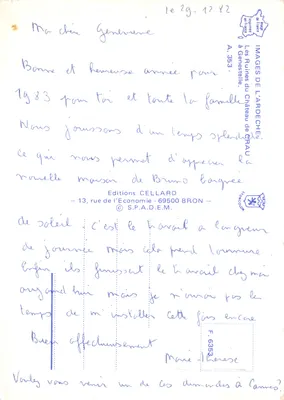 le 29-12 82
Ma chère Geneviève
Bonne et heureuse année pour
1983 pour toi et toute la famille
Nous jouissons d'un temps splendide
ce qui nous permet d'apprécier la
nouvelle maison de Bruno baignée
de soleil. C'est le travail à longueur
de journée mais cela prend tournure
Enfin ils finissent le travail chez moi
aujourd'hui mais je n'aurai pas le
temps de m'installer cette fois encore
Bien affectueusement
Marie-Thérèse
Voulez vous venir un de ces dimanches à
IMAGES DE L'ARDECHE
Les Ruines du Château de
à Genestelle.
A. 353
Editions CELLARD
13, rue de l'Economie - 69500 BRON
© S.P.A.D.E.M.